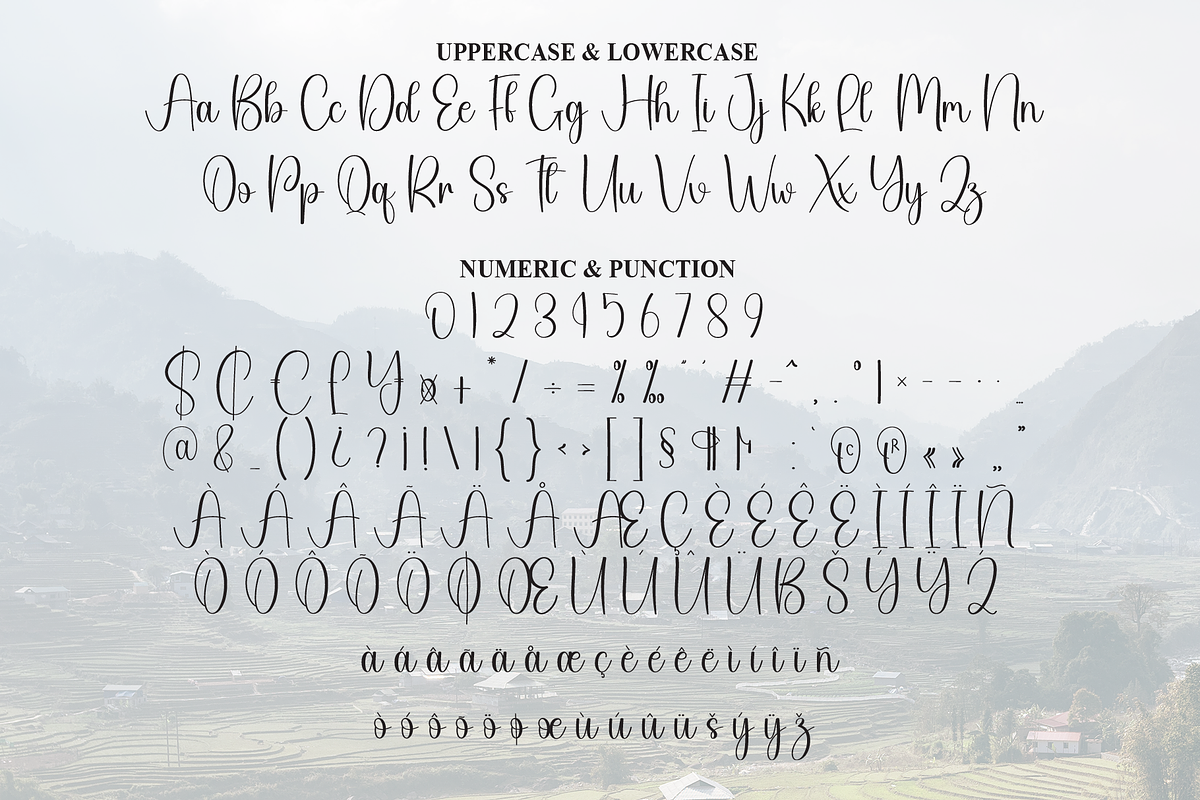 UPPERCASE & LOWERCASE
Aa Bb Cc Dd Ee Ff Gg Hh Ii Jj Kk Ll Mm Nn
Oo Pp Qq Rr Ss Tt Uu Vv Ww Xx Yy Zz
NUMERIC & PUNCTION
0 1 2 3 4 5 6 7 8 9
$ ₵ € £ ¥ ¤ + * / ÷ = % ‰ " ' # ¬ ^ , . ° | × - – · · …
@ & _ ( ) ¿ ? ¡ ! \ | { } ‹ › [ ] § ¶ : ` © ® « » „ ”
À Á Â Ã Ä Å Æ Ç È É Ê Ë Ì Í Î Ï Ñ
Ò Ó Ô Õ Ö Ø Œ Ù Ú Û Ü B Š Ý Ÿ Ž
à á â ã ä å æ ç è é ê ë ì í î ï ñ
ò ó ô õ ö ø œ ù ú û ü š ý ÿ ž